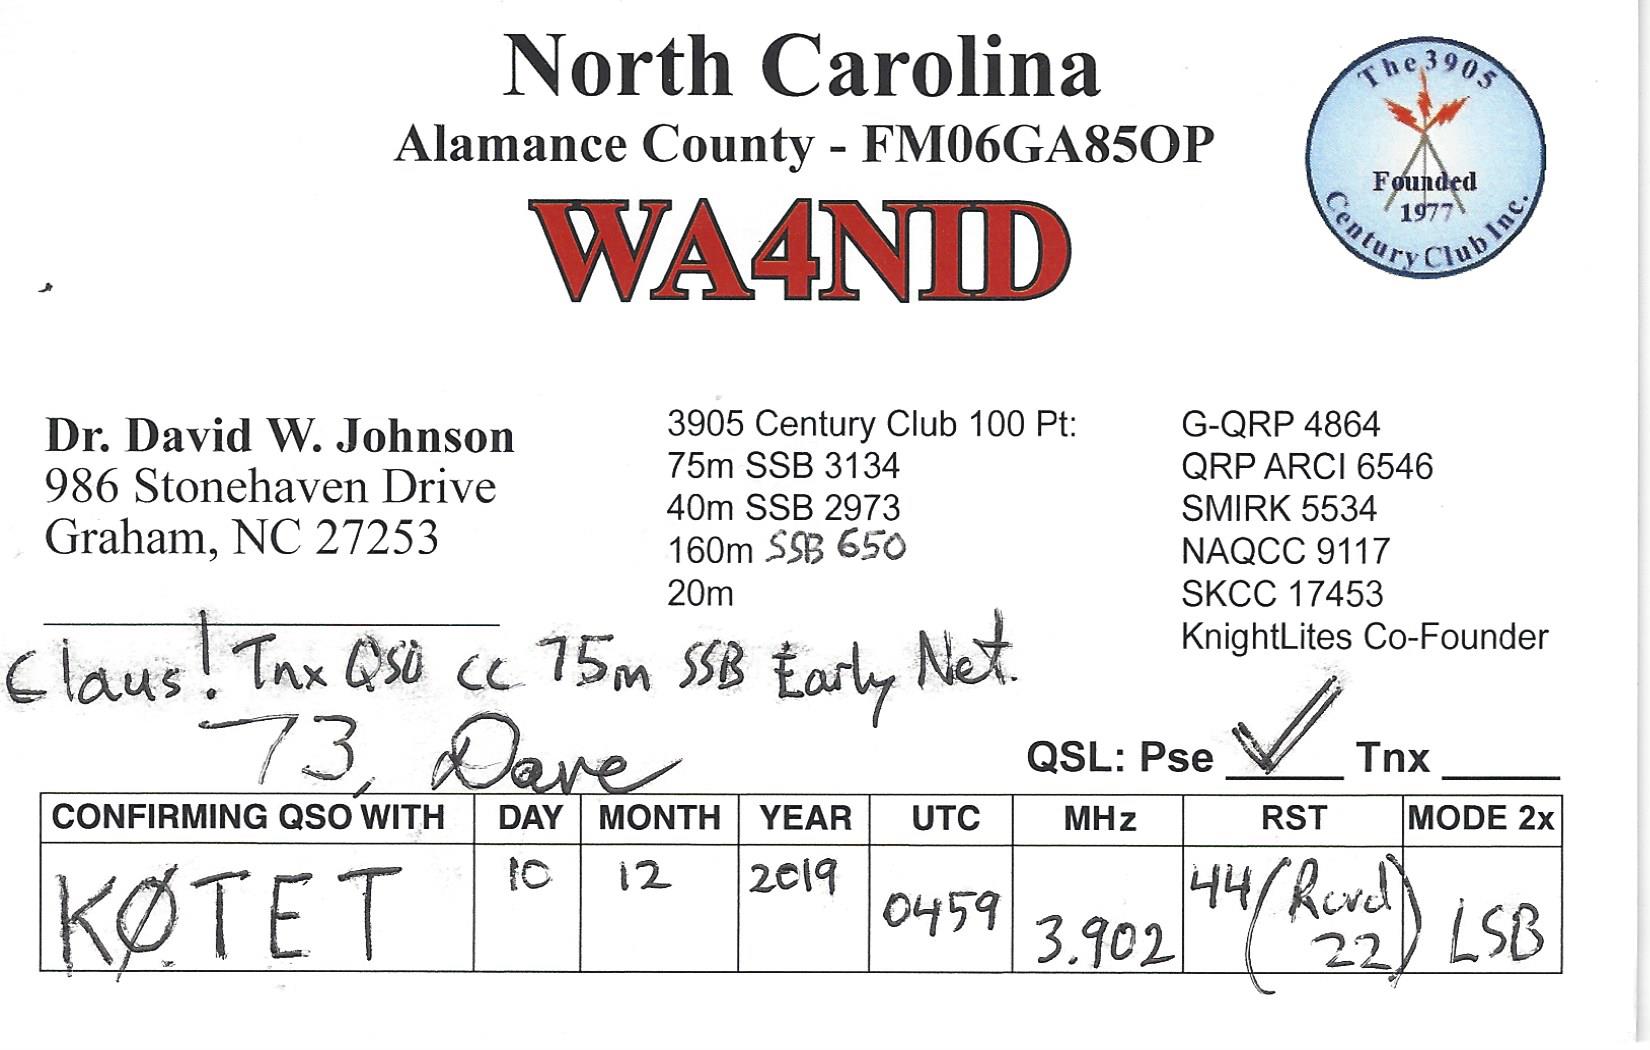 North Carolina
Alamance County - FM06GA85OP
WA4NID
The 3905
Founded
1977
Century Club Inc.
Dr. David W. Johnson
986 Stonehaven Drive
Graham, NC 27253
3905 Century Club 100 Pt:
75m SSB 3134
40m SSB 2973
160m SSB 650
20m
G-QRP 4864
QRP ARCI 6546
SMIRK 5534
NAQCC 9117
SKCC 17453
KnightLites Co-Founder
Claus! Tnx QSO CC 75m SSB Early Net.
73, Dave
QSL: Pse ✓ Tnx
CONFIRMING QSO WITH DAY MONTH YEAR UTC MHz RST MODE 2x
KØTET 10 12 2019 0459 3.902 44 (Rcvd 22) LSB